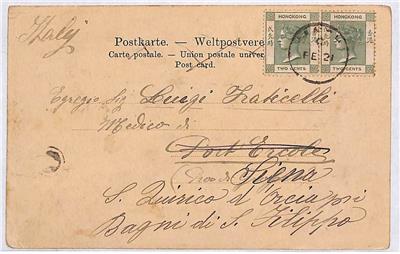 Italy
HONGKONG HONGKONG
TWO CENTS TWO CENTS
FE 21
Postkarte. — Weltpostvere
Carte postale. — Union postale univer
Post card.
Egregio Sig Luigi Fraticelli
Medico di
Port Ercole
Siena
S. Quirico d'Orcia per
Bagni di S. Filippo